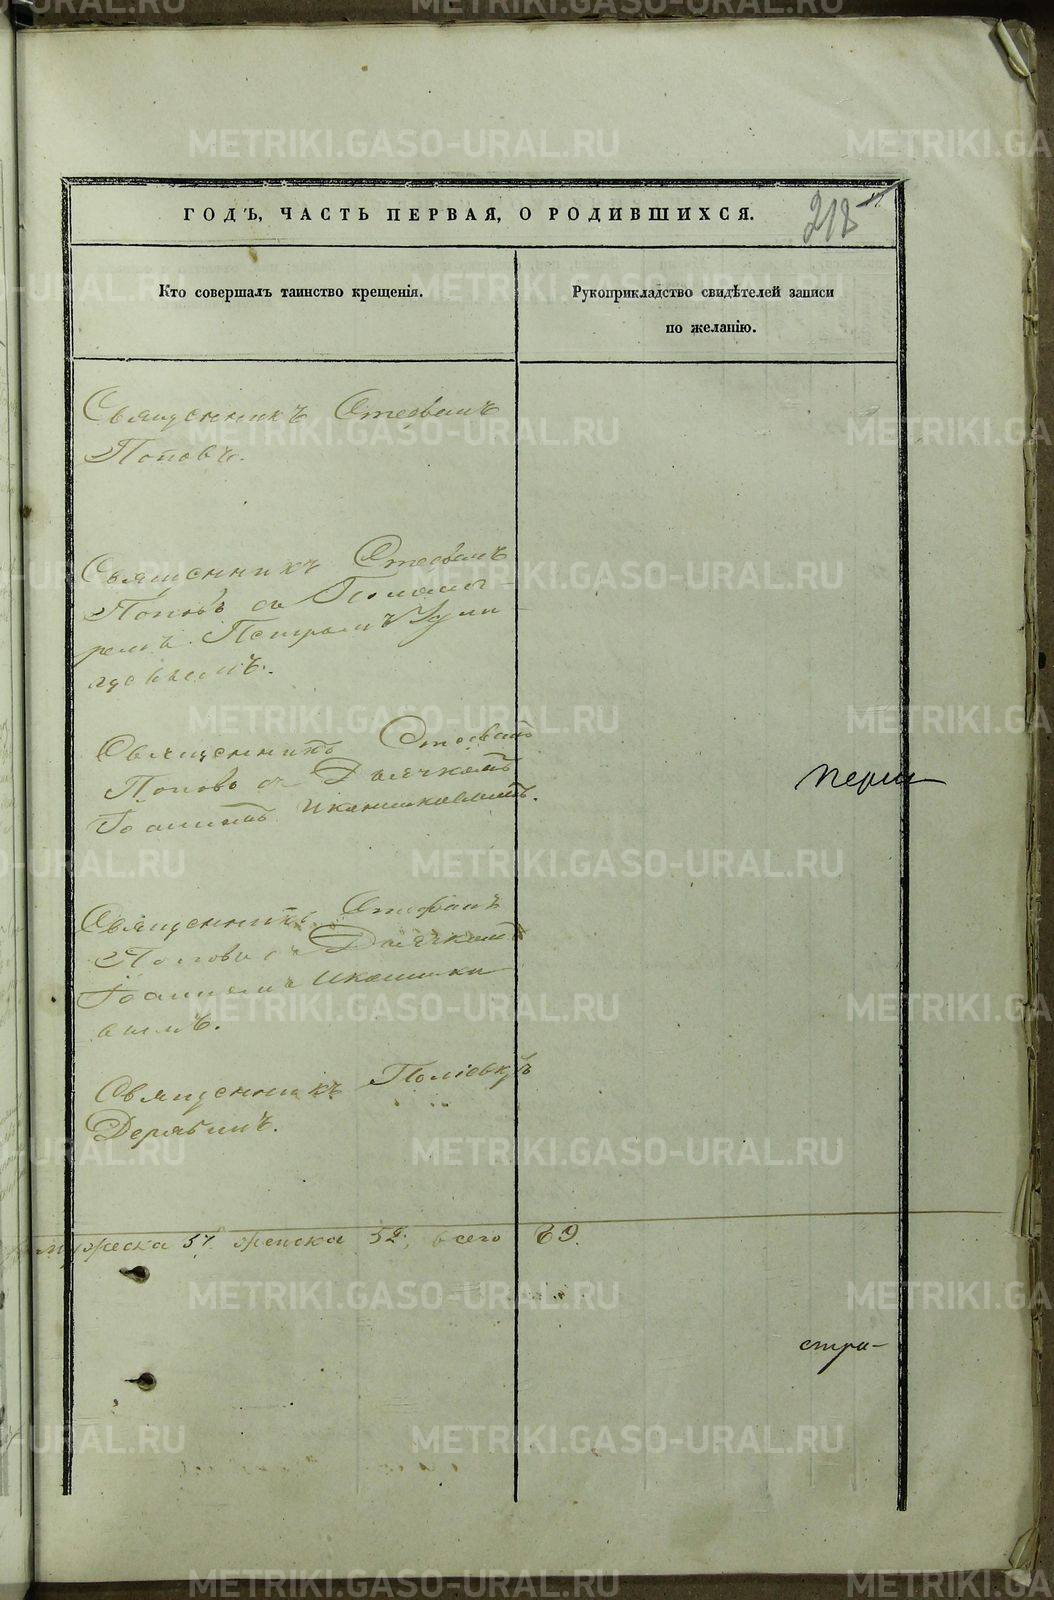 METRIKI.GASO-URAL.RU
ГОДЪ, ЧАСТЬ ПЕРВАЯ, О РОДИВШИХСЯ.
218
Кто совершалъ таинство крещенія.
Рукоприкладство свидѣтелей записи
по желанію.
Священникъ Стефанъ
Поповъ.
Священникъ Стефанъ
Поповъ съ Понама-
ремъ Петромъ
Священникъ Стефанъ
Поповъ съ Дьячкомъ
Іоанномъ Иконниковымъ.
Священникъ Стефанъ
Поповъ съ Дьячкомъ
Іоанномъ Иконнико
вымъ.
Священникъ Поліевктъ
Дерябинъ.
мужеска 37. женска 52, всего 89.
стра-